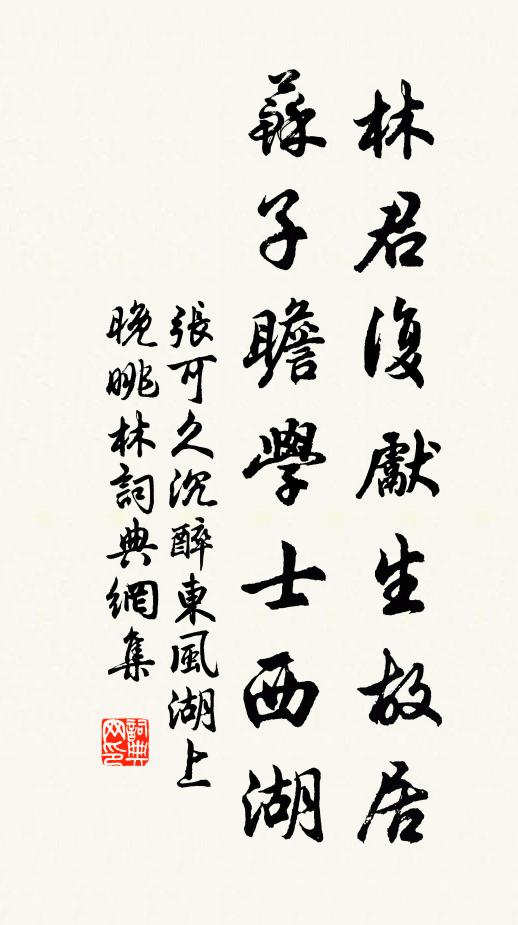 林君復獻生故居
蘇子瞻學士西湖
張可久沉醉東風湖上
晚眺林詞典網集
詞典网印